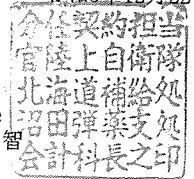 分任契約担当
官陸上自衛隊
北海道補給処
沼田弾薬支処
智
会計科長之印